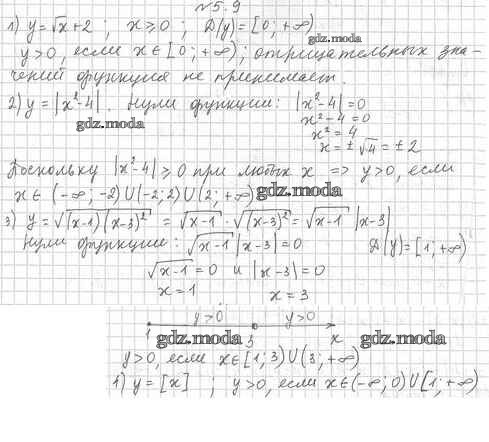 №5-9
1) y=√x+2 ; x≥0 ; D(y)=[0;+∞)
y>0, если x∈[0;+∞); отрицательных зна-
чений функция не принимает.
2) y=|x²-4|. Нули функции: |x²-4|=0
x²-4=0
gdz.moda
x²=4
x=±√4=±2
Поскольку |x²-4|≥0 при любых x => y>0, если
x∈(-∞;-2)U(-2;2)U(2;+∞) gdz.moda
3) y=√(x-1)(x-3)² = √x-1 · √(x-3)² = √x-1 |x-3|
Нули функции: √x-1 |x-3|=0 D(y)=[1;+∞)
√x-1=0 и |x-3|=0
x=1 x=3
y>0 y>0
1 3 x
gdz.moda gdz.moda gdz.moda
y>0, если x∈[1;3)U(3;+∞)
1) y=[x] ; y>0, если x∈(-∞;0)U[1;+∞)